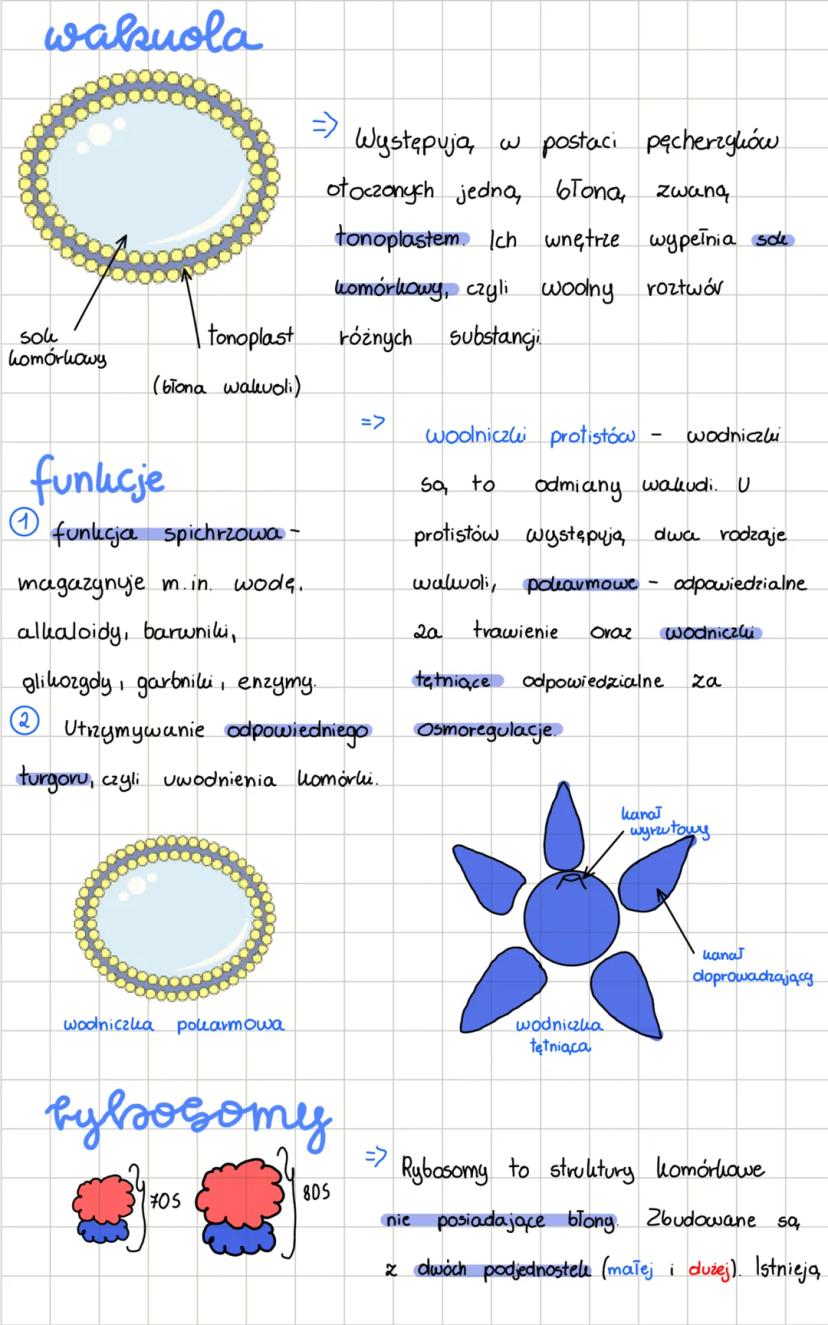 wakuola
=> Występują w postaci pęcherzyków
otoczonych jedną błoną zwaną
tonoplastem. Ich wnętrze wypełnia sok
komórkowy, czyli wodny roztwór
różnych substancji
sok
komórkowy
tonoplast
(błona wakuoli)
funkcje
① funkcja spichrzowa -
magazynuje m.in. wodę,
alkaloidy, barwniki,
glikozydy, garbniki, enzymy.
② Utrzymywanie odpowiedniego
turgoru, czyli uwodnienia komórki.
=> wodniczki protistów - wodniczki
są to odmiany wakuoli. U
protistów występują dwa rodzaje
wakuoli, pokarmowe - odpowiedzialne
za trawienie oraz wodniczki
tętniące odpowiedzialne za
osmoregulacje.
wodniczka pokarmowa
kanał
wyrzutowy
kanał
doprowadzający
wodniczka
tętniąca
rybosomy
70S
80S
=> Rybosomy to struktury komórkowe
nie posiadające błony. Zbudowane są
z dwóch podjednostek (małej i dużej). Istnieją